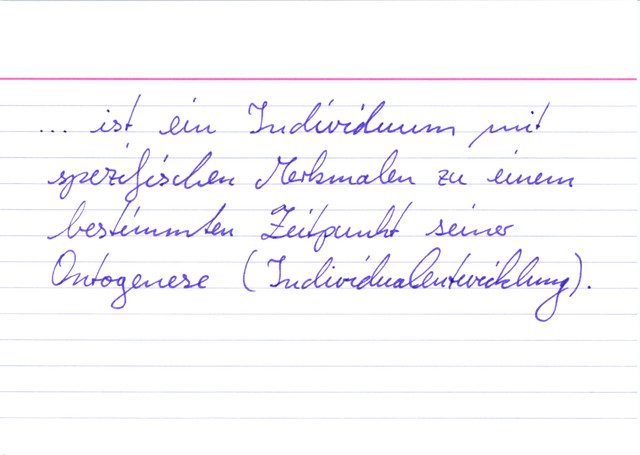 ... ist ein Individuum mit
spezifischen Merkmalen zu einem
bestimmten Zeitpunkt seiner
Ontogenese (Individualentwicklung).